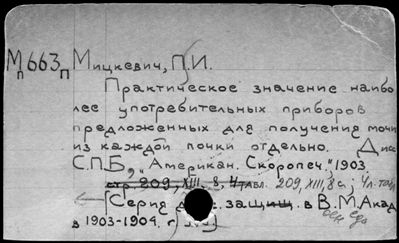 М п663 п Мицкевич, П.И.
Практическое значение наибо
лее употребительных приборов
предложенных для получения мочи
из каждой почки отдельно. Дисс
С.П.Б., "Американ. Скоропеч.", 1903
стр. 209, XIII, 8, 4 табл. 209, XIII, 8 с; 4 л. табл
(Серия защищ. в В.М. Акад
в 1903-1904 г